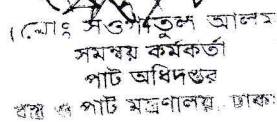 (মোঃ সওগাতুল আলম
সমন্বয় কর্মকর্তা
পাট অধিদপ্তর
বস্ত্র ও পাট মন্ত্রণালয়, ঢাকা